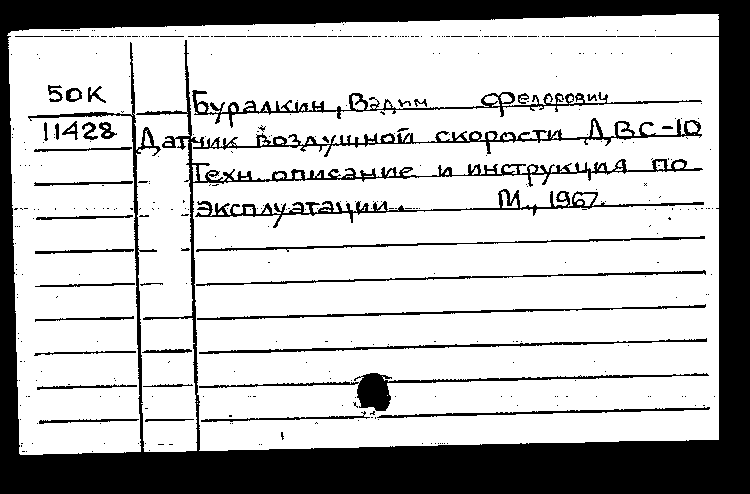 50К
Буралкин, Вадим Федорович
11428
Датчик воздушной скорости ДВС-10
Техн. описание и инструкция по
эксплуатации. М., 1967.